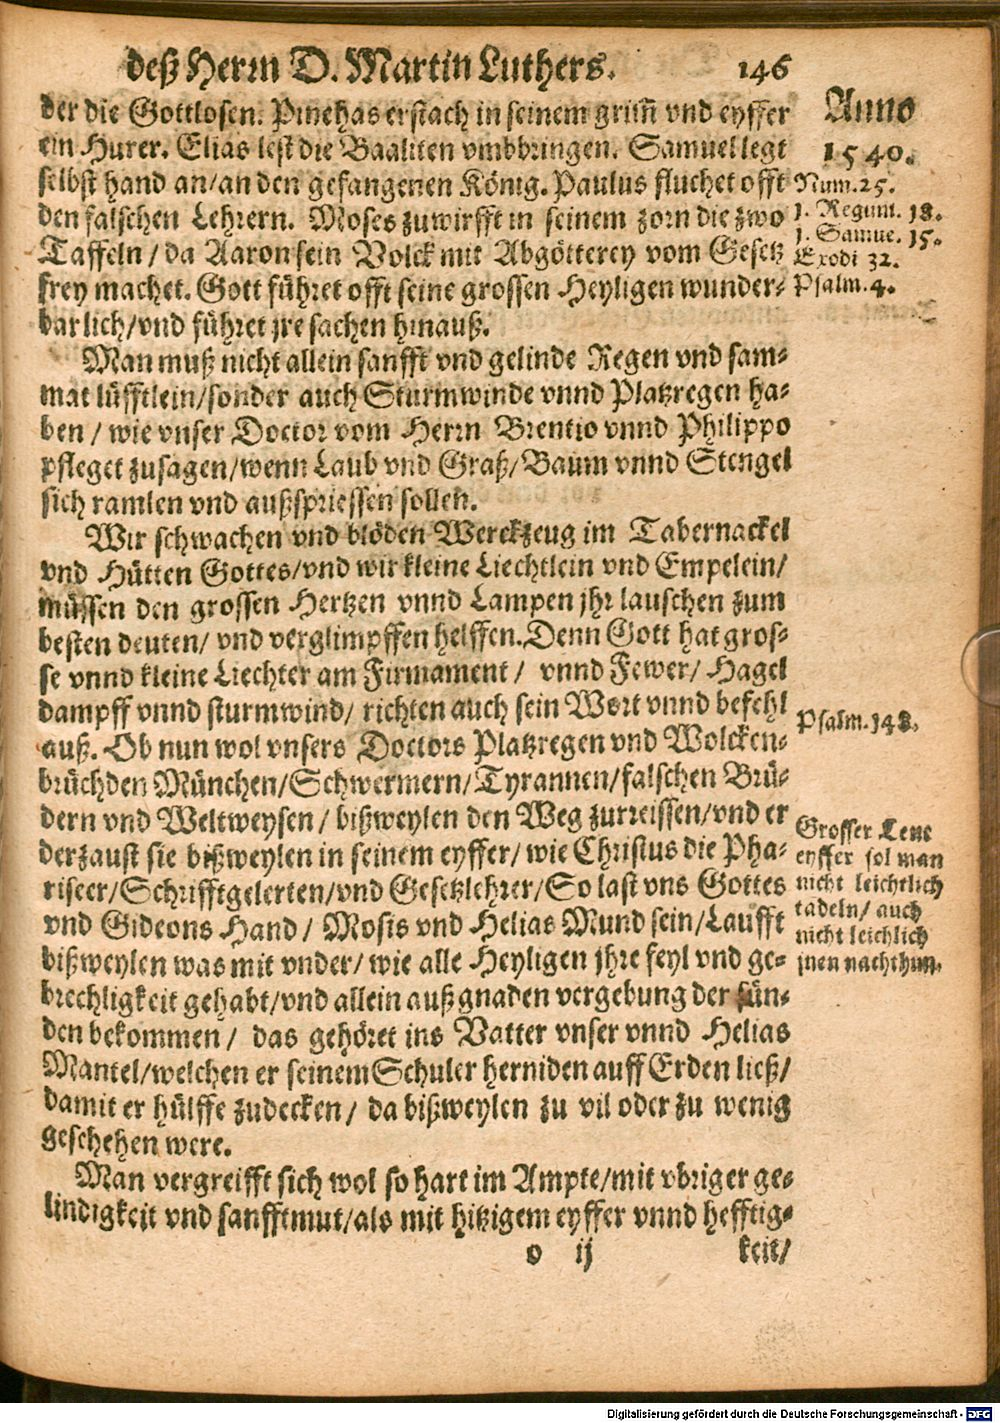 deß Herrn D. Martin Luthers. 146
der die Gottlosen. Pinehas erstach in seinem grim̃ vnd eyffer
ein Hurer. Elias lest die Baaliten vmbbringen. Samuel legt
selbst hand an/an den gefangenen König. Paulus fluchet offt
den falschen Lehrern. Moses zuwirfft in seinem zorn die zwo
Taffeln/ da Aaron sein Volck mit Abgötterey vom Gesetz
frey machet. Gott führet offt seine grossen Heyligen wunder-
barlich/vnd führet jre sachen hinauß.
Man muß nicht allein sanfft vnd gelinde Regen vnd sam-
mat lüfftlein/sonder auch Sturmwinde vnnd Platzregen ha-
ben / wie vnser Doctor vom Herrn Brentio vnnd Philippo
pfleget zusagen/wenn Laub vnd Graß/Baum vnnd Stengel
sich ramlen vnd außspriessen sollen.
Wir schwachen vnd blöden Werckzeug im Tabernackel
vnd Hütten Gottes/vnd wir kleine Liechtlein vnd Empelein/
müssen den grossen Hertzen vnnd Lampen jhr lauschen zum
besten deuten/ vnd verglimpffen helffen. Denn Gott hat gros-
se vnnd kleine Liechter am Firmament / vnnd Fewer/ Hagel
dampff vnnd sturmwind/ richten auch sein Wort vnnd befehl
auß. Ob nun wol vnsers Doctors Platzregen vnd Wolcken-
brüchden München/Schwermern/Tyrannen/falschen Brü-
dern vnd Weltweysen/ bißweylen den Weg zurreissen/vnd er
derzaust sie bißweylen in seinem eyffer/ wie Christus die Pha-
riseer/Schrifftgelerten/vnd Gesetzlehrer/So last vns Gottes
vnd Gideons Hand / Mosis vnd Helias Mund sein/Laufft
bißweylen was mit vnder/ wie alle Heyligen jhre feyl vnd ge-
brechligkeit gehabt/vnd allein auß gnaden vergebung der sün-
den bekommen / das gehöret ins Vatter vnser vnnd Helias
Mantel/welchen er seinem Schuler herniden auff Erden ließ/
damit er hülffe zudecken/ da bißweylen zu vil oder zu wenig
geschehen were.
Man vergreifft sich wol so hart im Ampte/mit vbriger ge-
lindigkeit vnd sanfftmut/als mit hitzigem eyffer vnnd hefftig-
o ij keit/
Anno
1540.
Num.25.
1. Regum. 18.
1. Samue. 15.
Exodi 32.
Psalm.4.
Psalm.148.
Grosser Leut
eyffer sol man
nicht leichtlich
tadeln/ auch
nicht leichlich
jnen nachthun.
Digitalisierung gefördert durch die Deutsche Forschungsgemeinschaft - DFG